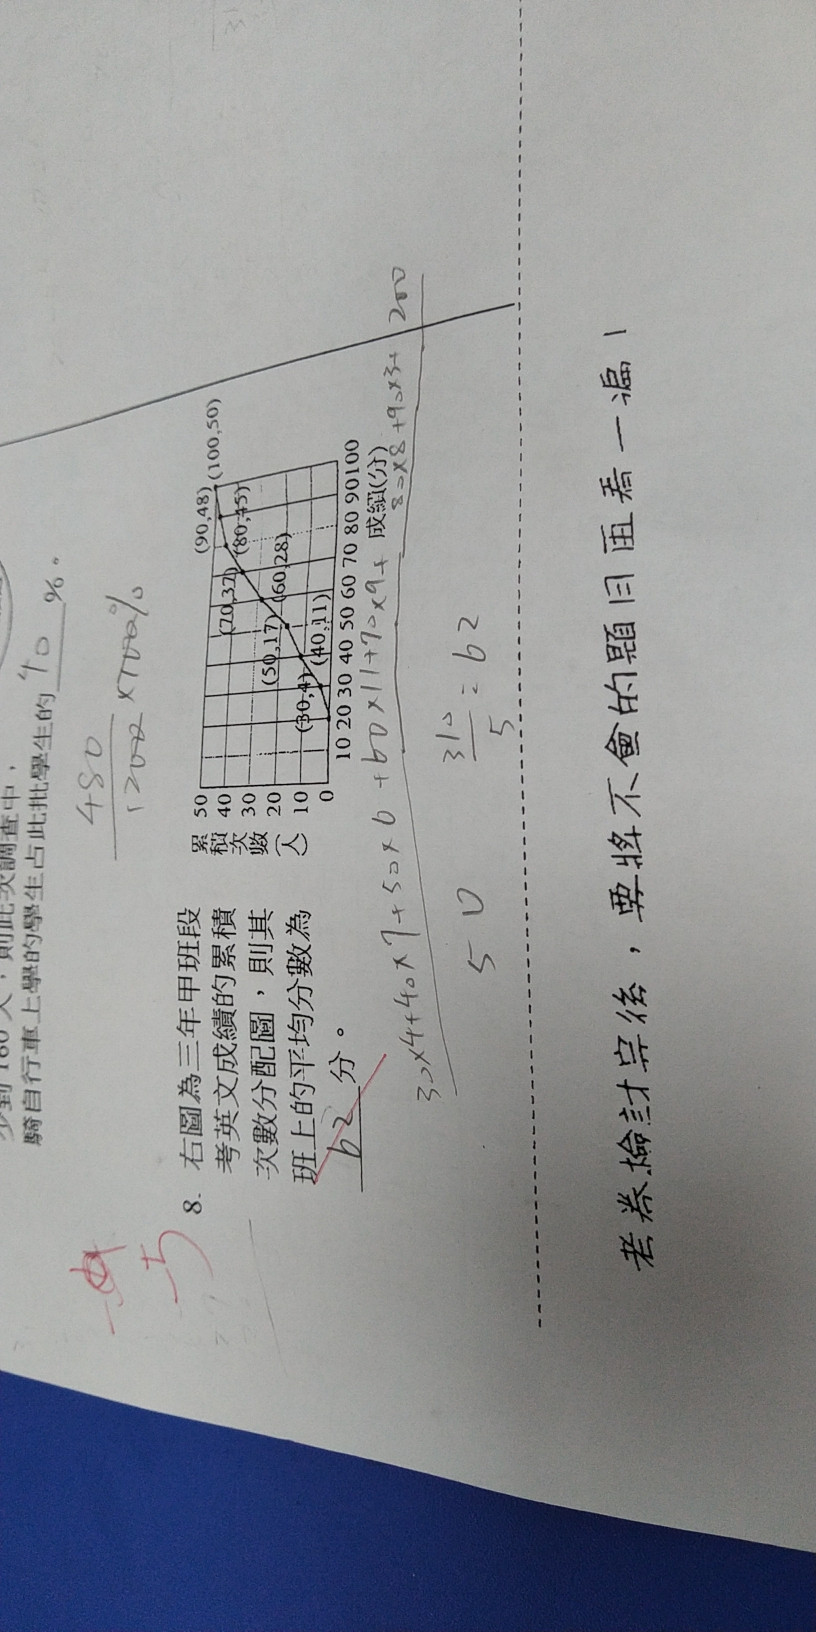 騎自行車上學的學生占此批學生的 40 %。
480
1200 ×100%
8. 右圖為三年甲班段
考英文成績的累積
次數分配圖，則其
班上的平均分數為
62 分。
累積次數(人)
50
40
30
20
10
0
(100,50)
(90,48)
(80,45)
(70,37)
(60,28)
(50,17)
(40,11)
(30,4)
10 20 30 40 50 60 70 80 90 100
成績(分)
30×4+40×7+50×6+60×11+70×9+80×8+90×3+200
50
310
5 = 62
考卷檢討完後，要將不會的題目再看一遍！